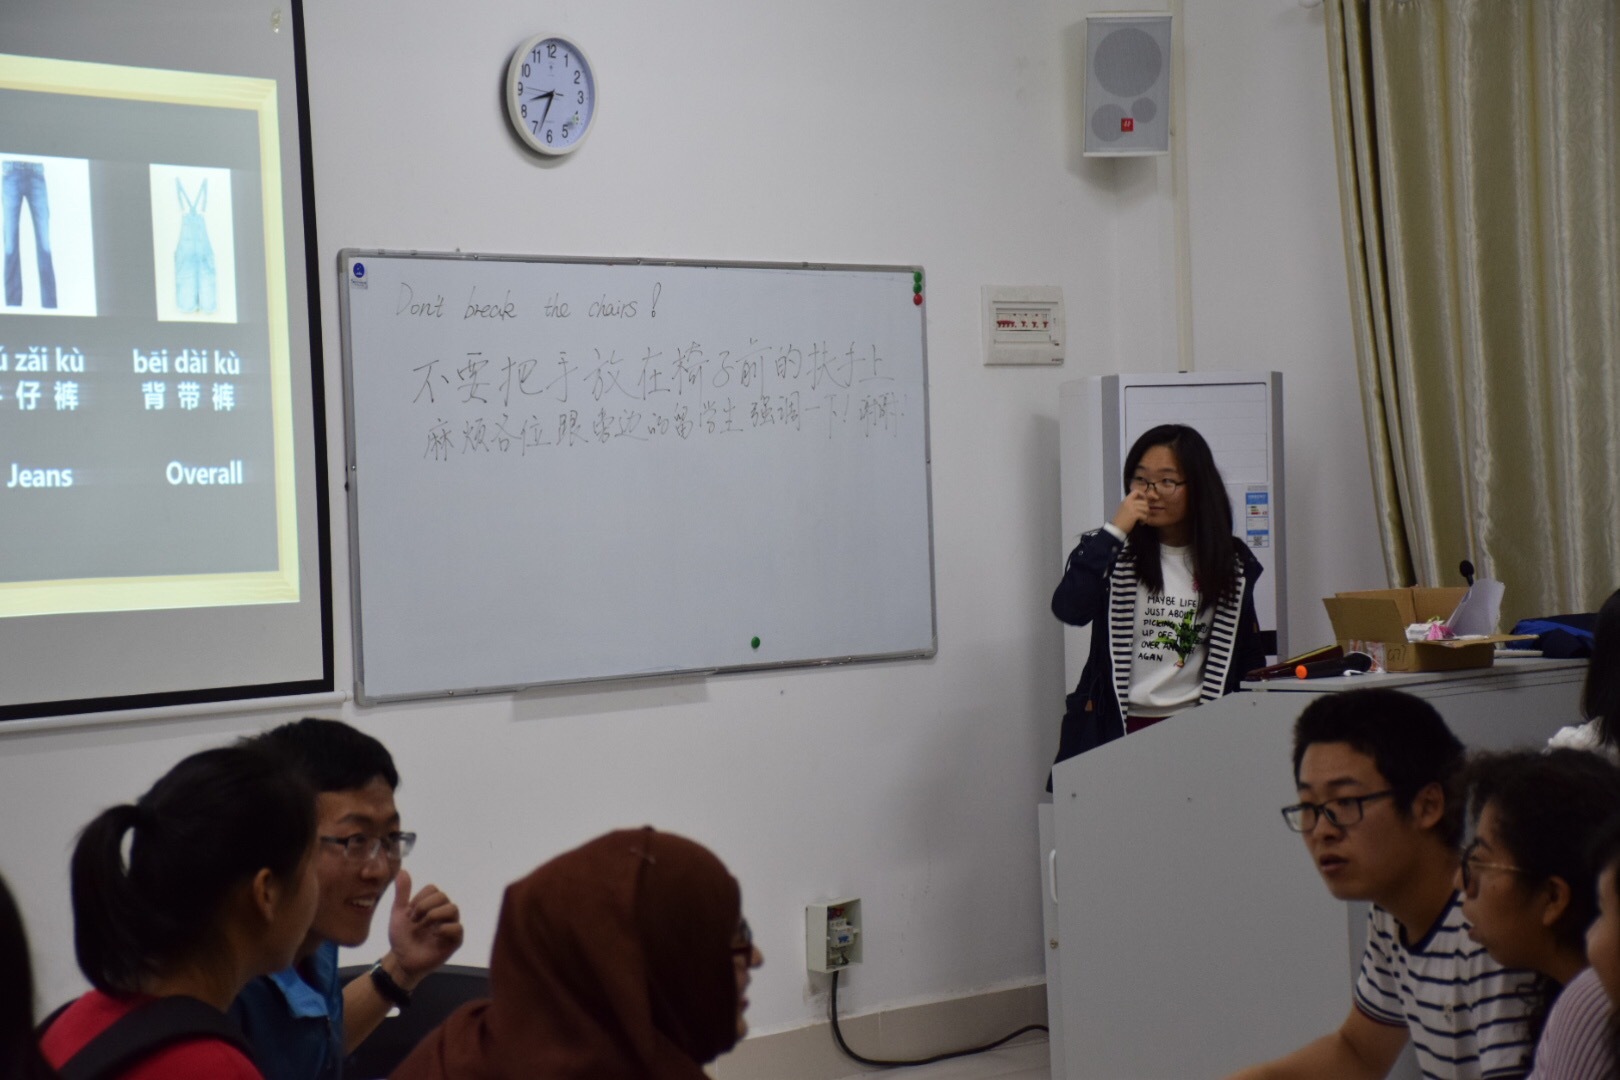 zǎi kù
bēi dài kù
仔 裤
背 带 裤
Jeans
Overall
12
1
2
3
4
5
6
7
8
9
10
11
Don't break the chairs!
不要把手放在椅子前的扶手上
麻烦各位跟旁边的留学生强调一下!谢谢!
MAYBE LIFE
JUST ABOUT
PICKING YOU
UP OFF
OVER AN
AGAIN